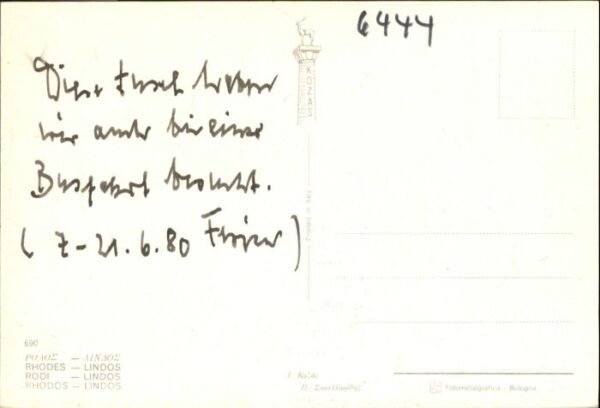 6444
Diese Insel haben
wir auch bei einer
Busfahrt besucht.
(7-21.6.80
KOZAS
Printed in Italy
690
ΡΟΔΟΣ — ΛΙΝΔΟΣ
RHODES — LINDOS
RODI — LINDOS
RHODOS — LINDOS
Fotometalgrafica - Bologna